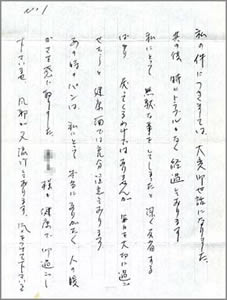 No.1
私の件につきましては、大変御世話になりました。
其の後、特にトラブルもなく経過しております
私にとって 無駄な事をしてしまったと深く反省する
ばかり 戻ってくるわけではありませんが 毎日を大切に過ごさ
せて 健康面では充分注意しております
あの時のパンは、私にとって本当にありがたく 人の暖
かさを感じております。 様も健康で御過ごし
下さいませ 風邪が又流行しております。気をつけて下さいませ